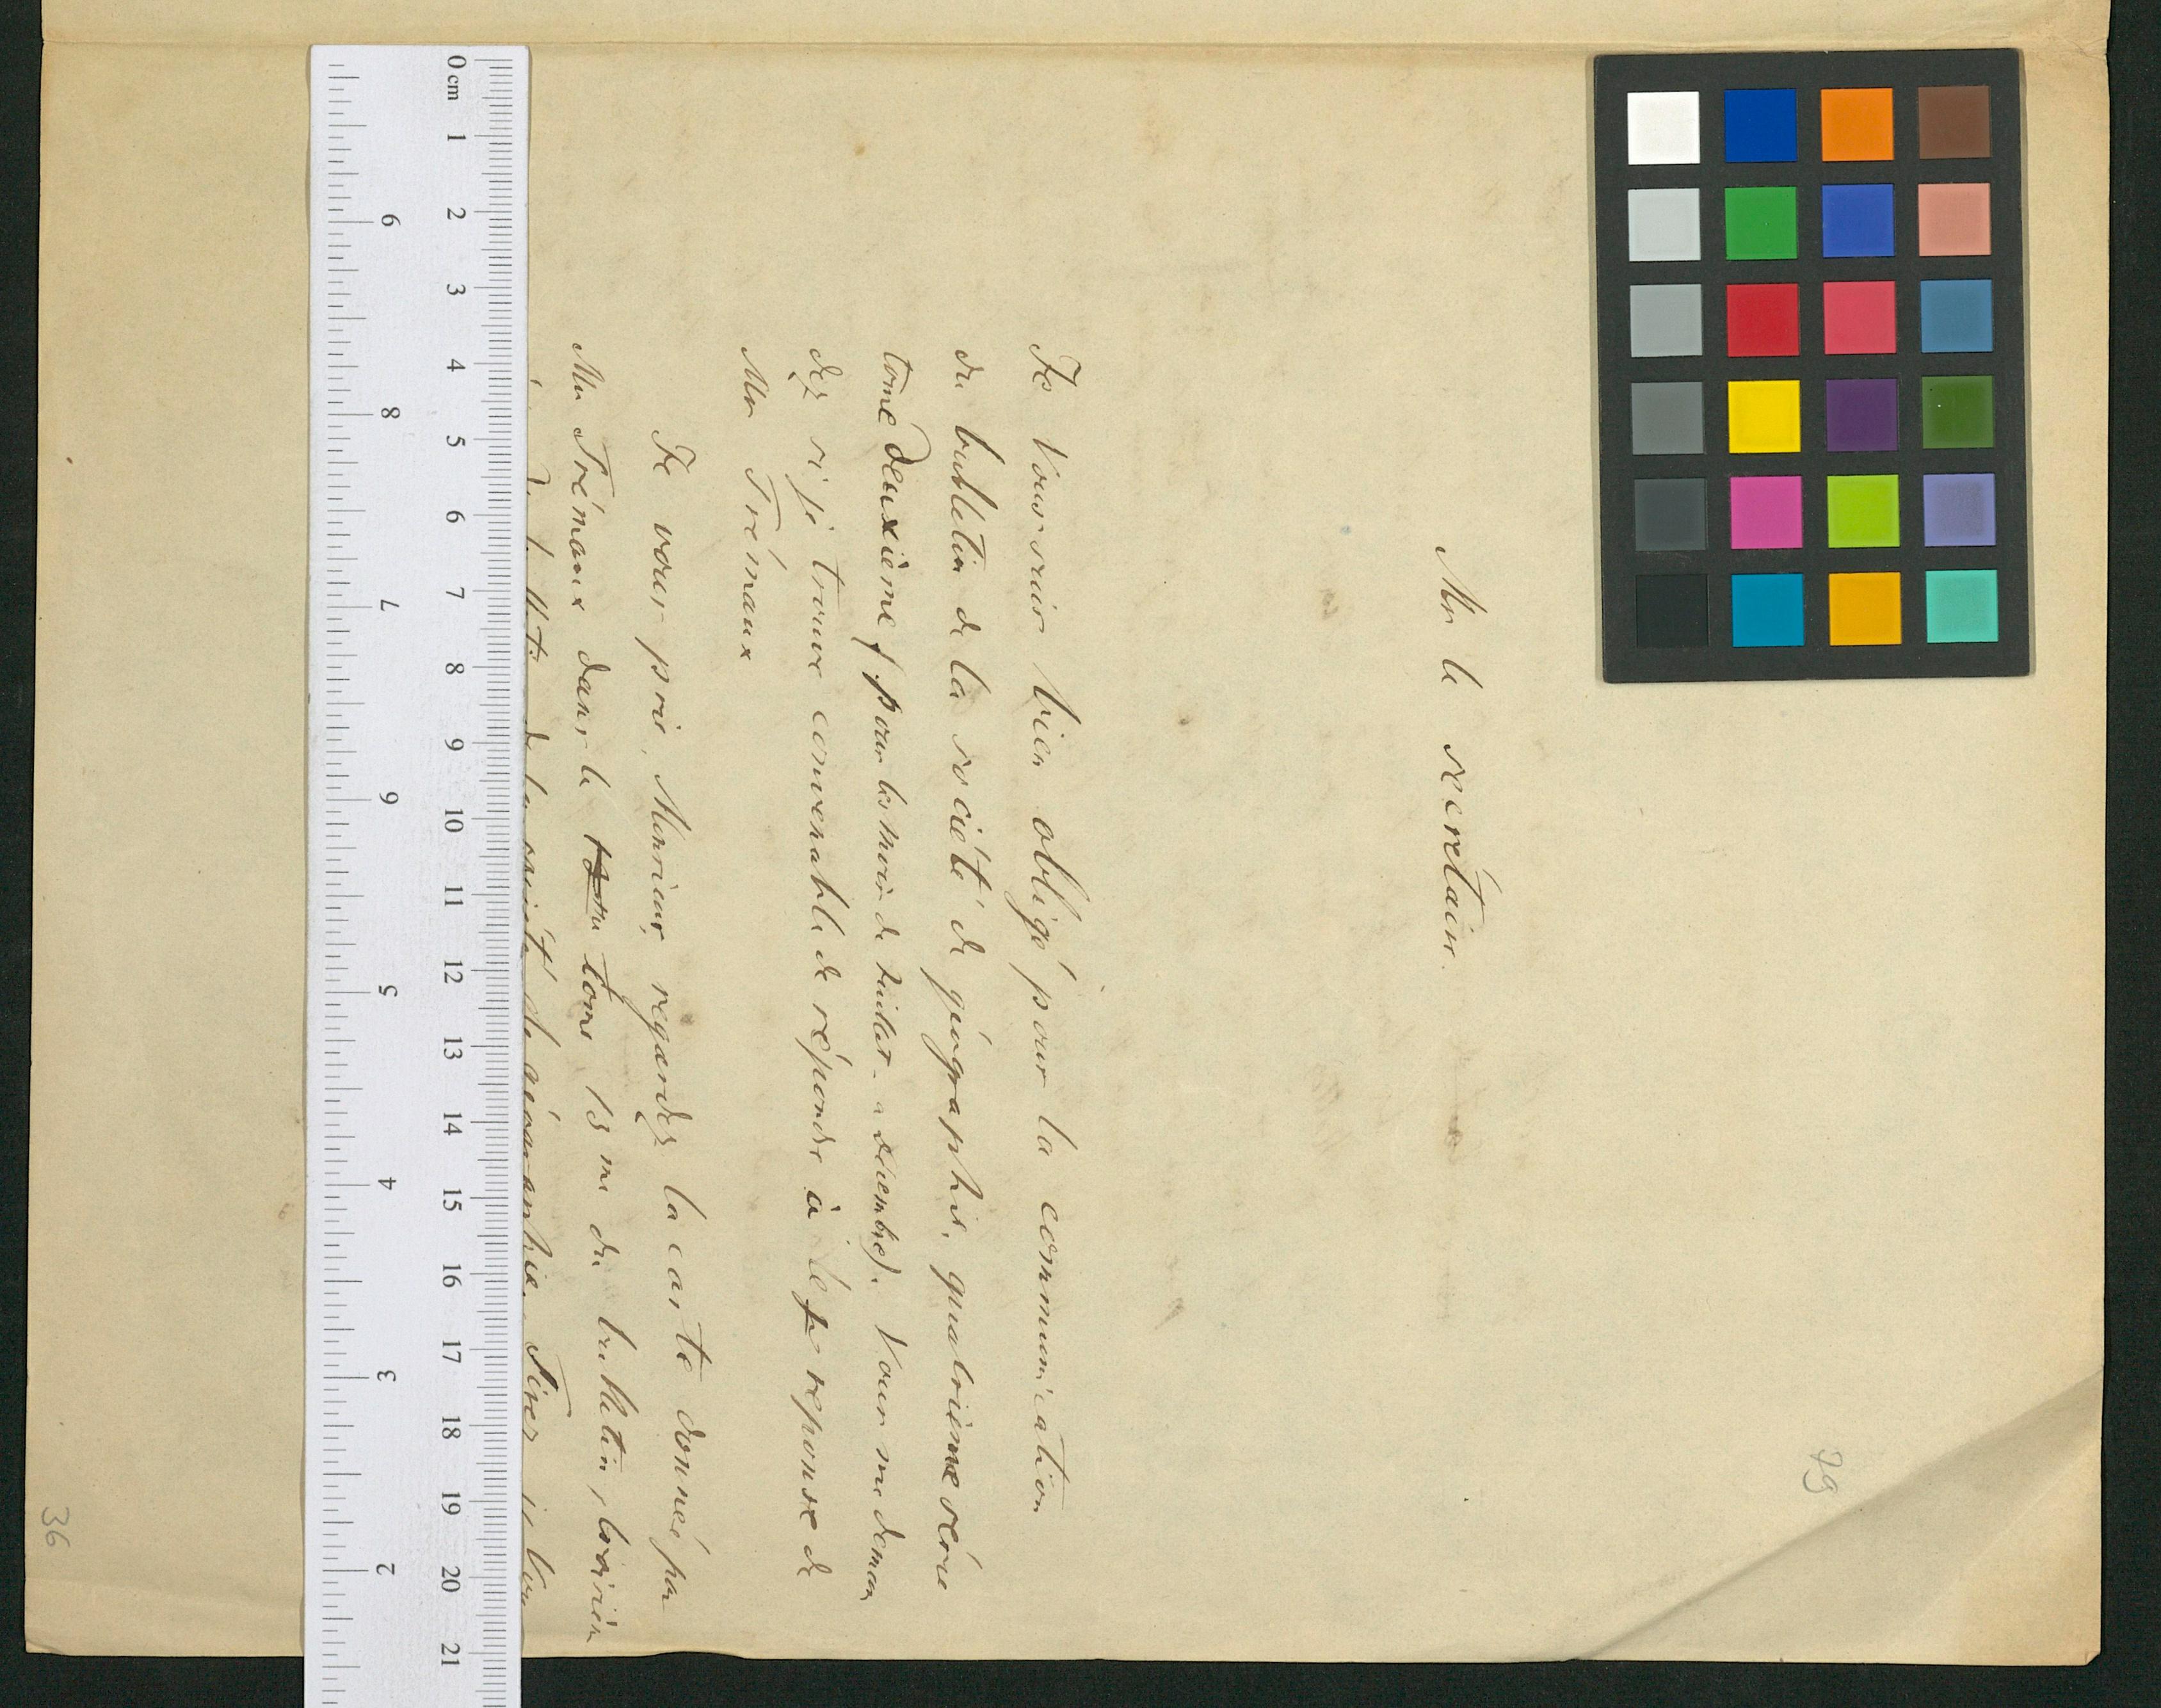 79
Mr le secrétair.
Je vous suis bien obligé pour la communication
du bulletin de la société de géographie, quatrième série
tome deuxième (pour les mois de Juillet - a decembre). Vous me deman
dez si je trouve convenable de réponde à le reponse de
Mr Trémaux
Je vous prie, Monsieur, regardez la carte donneé par
Mr Trémaux dans le tome 13 me du bulletin, troisièm
de la société de géographie. Tirez
36
0 cm 1 2 3 4 5 6 7 8 9 10 11 12 13 14 15 16 17 18 19 20 21
2 3 4 5 6 7 8 9